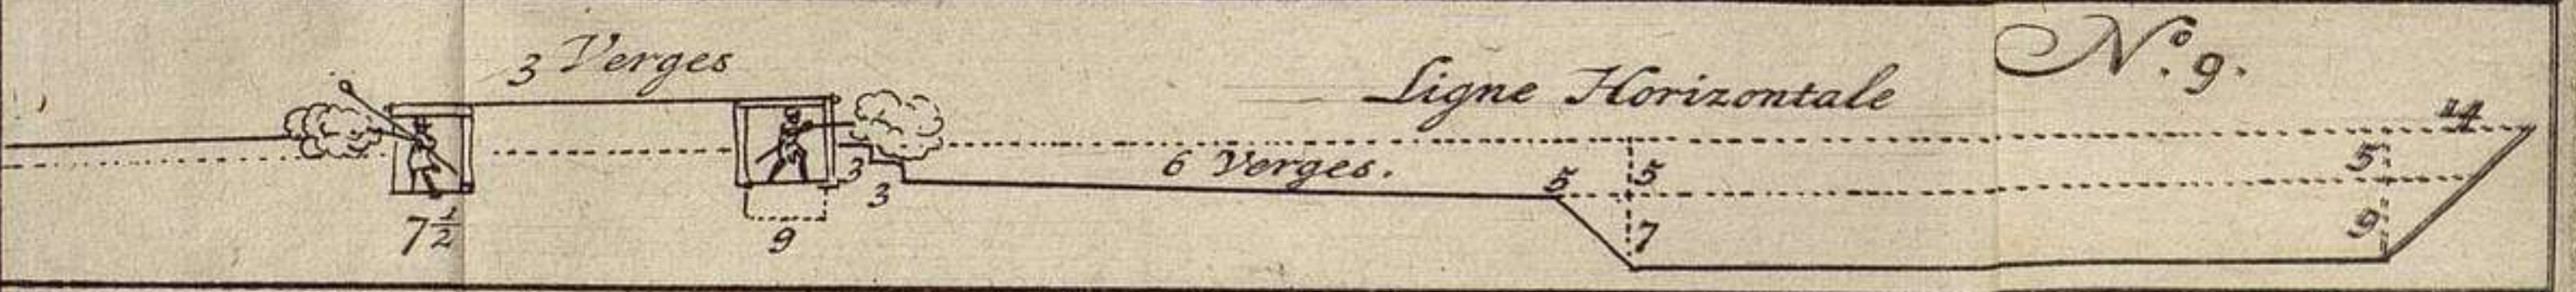 3 Verges
Ligne Horizontale
Nº. 9.
14
3
3
6 Verges.
5
5
5
7 1/2
9
7
9